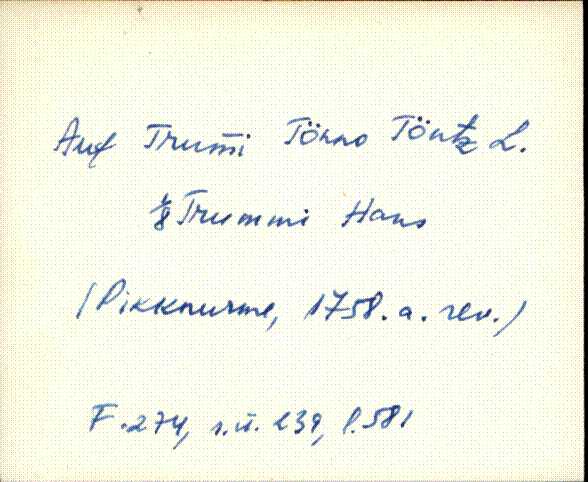 Auf Trum̄i Törno Töntz L.
1/8 Trummi Hans
(Pikknurme, 1758. a. rev.)
F. 274, s.ü. 239, l. 581